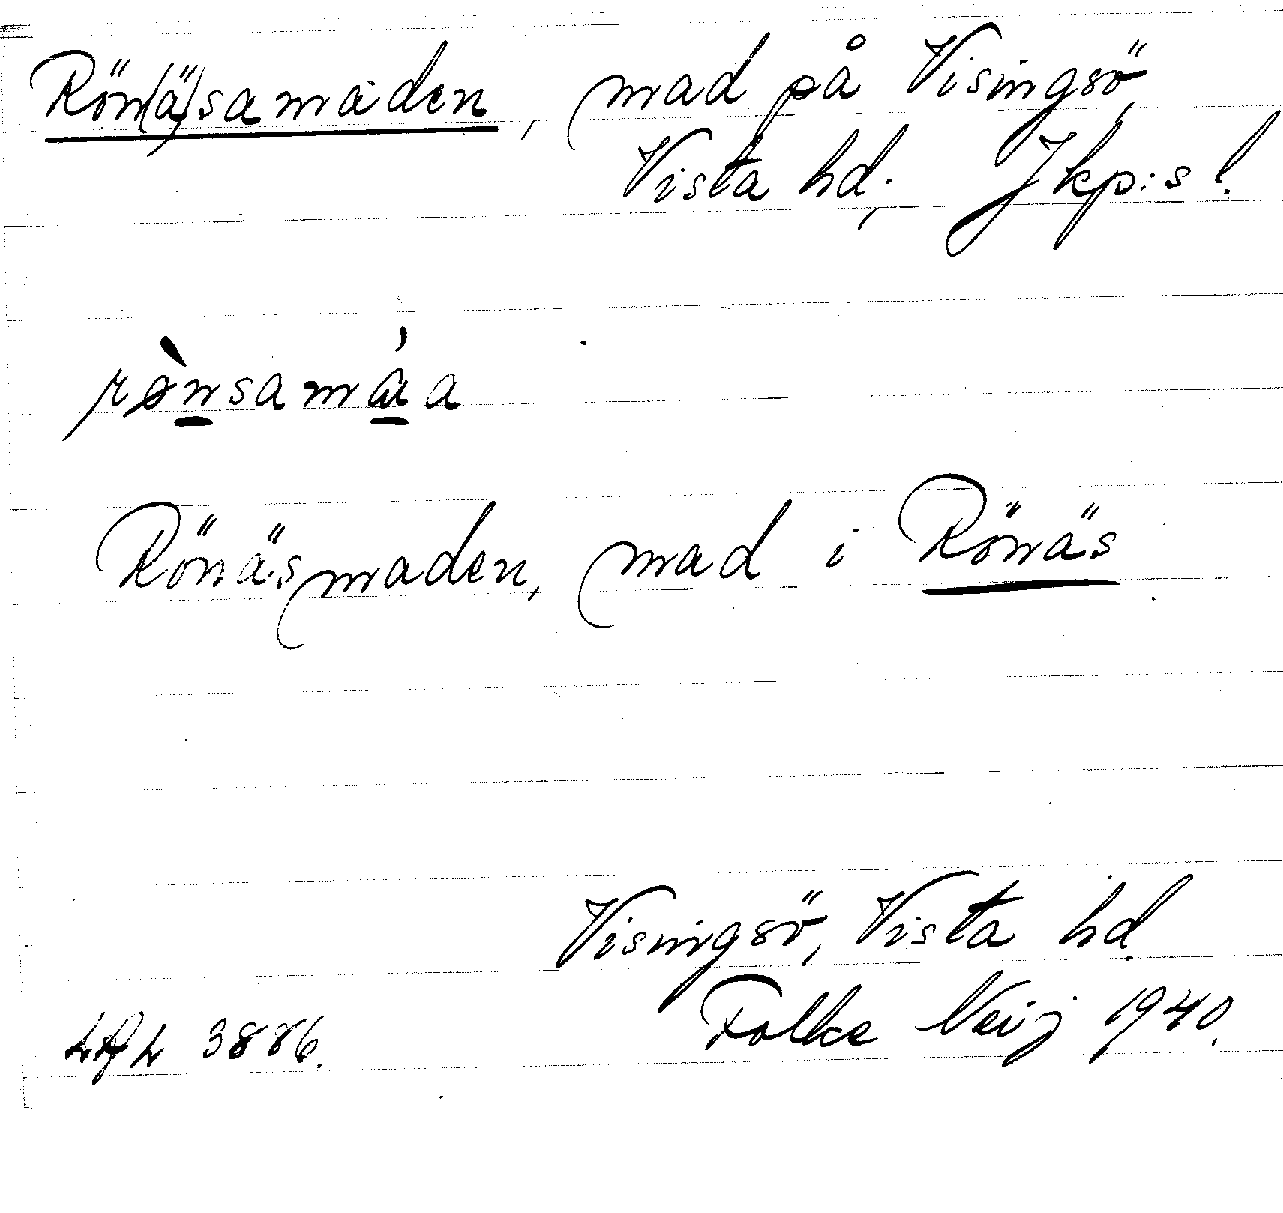 Rön(ä)samaden, mad på Visingsö,
Vista hd, Jkp:s l.
rø̀nsamáa
Rönäsmaden, mad i Rönäs
Visingsö, Vista hd.
LAL 3886. Folke Neij 1940.